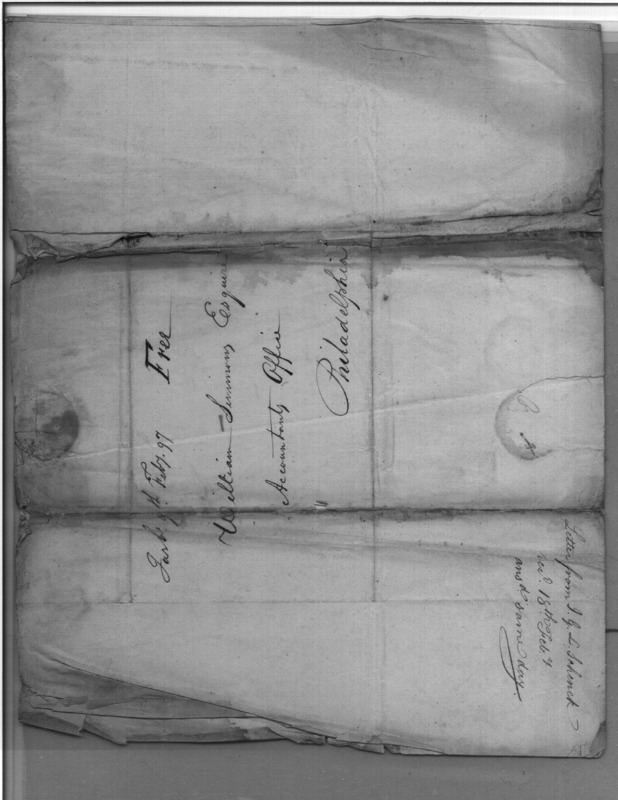 7th Feby. 97 Free
William Simmons Esquire
Accountants Office
Philadelphia
Letter from
Recd. 18th Feb. &
ansd same day